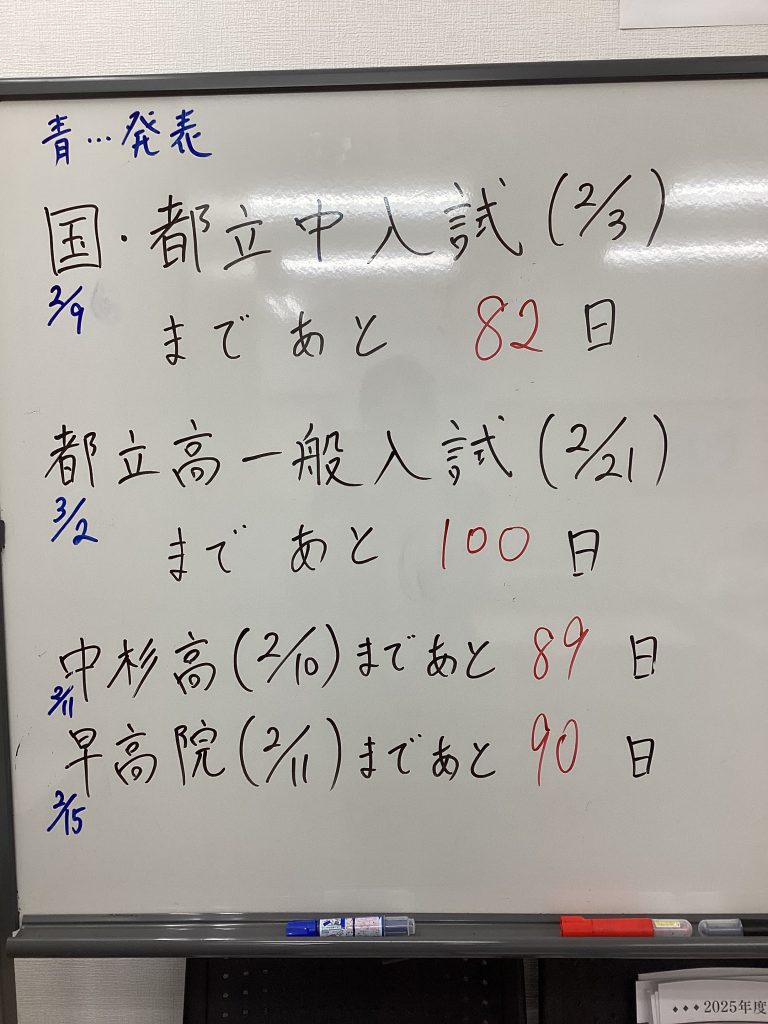 青…発表
国・都立中入試(2/3)
2/9
まであと 82日
都立高一般入試(2/21)
3/2
まであと 100日
中杉高(2/10)まであと 89日
2/11
早高院(2/11)まであと 90日
2/15
◆◆◆2025年度